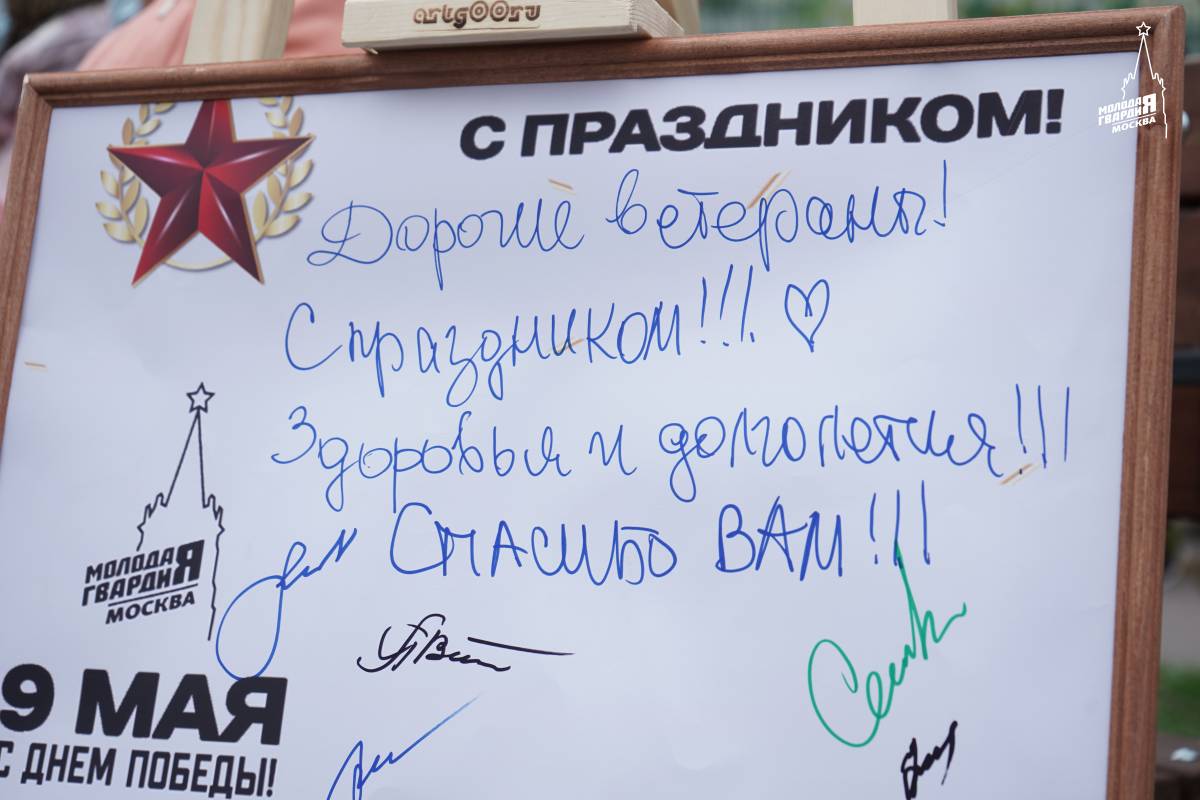 artgOOru
С ПРАЗДНИКОМ!
МОЛОДАЯ
ГВАРДИЯ
МОСКВА
Дорогие ветераны!
С праздником!!! ♡
Здоровья и долголетия!!!
Спасибо ВАМ!!!
МОЛОДАЯ
ГВАРДИЯ
МОСКВА
9 МАЯ
С ДНЕМ ПОБЕДЫ!